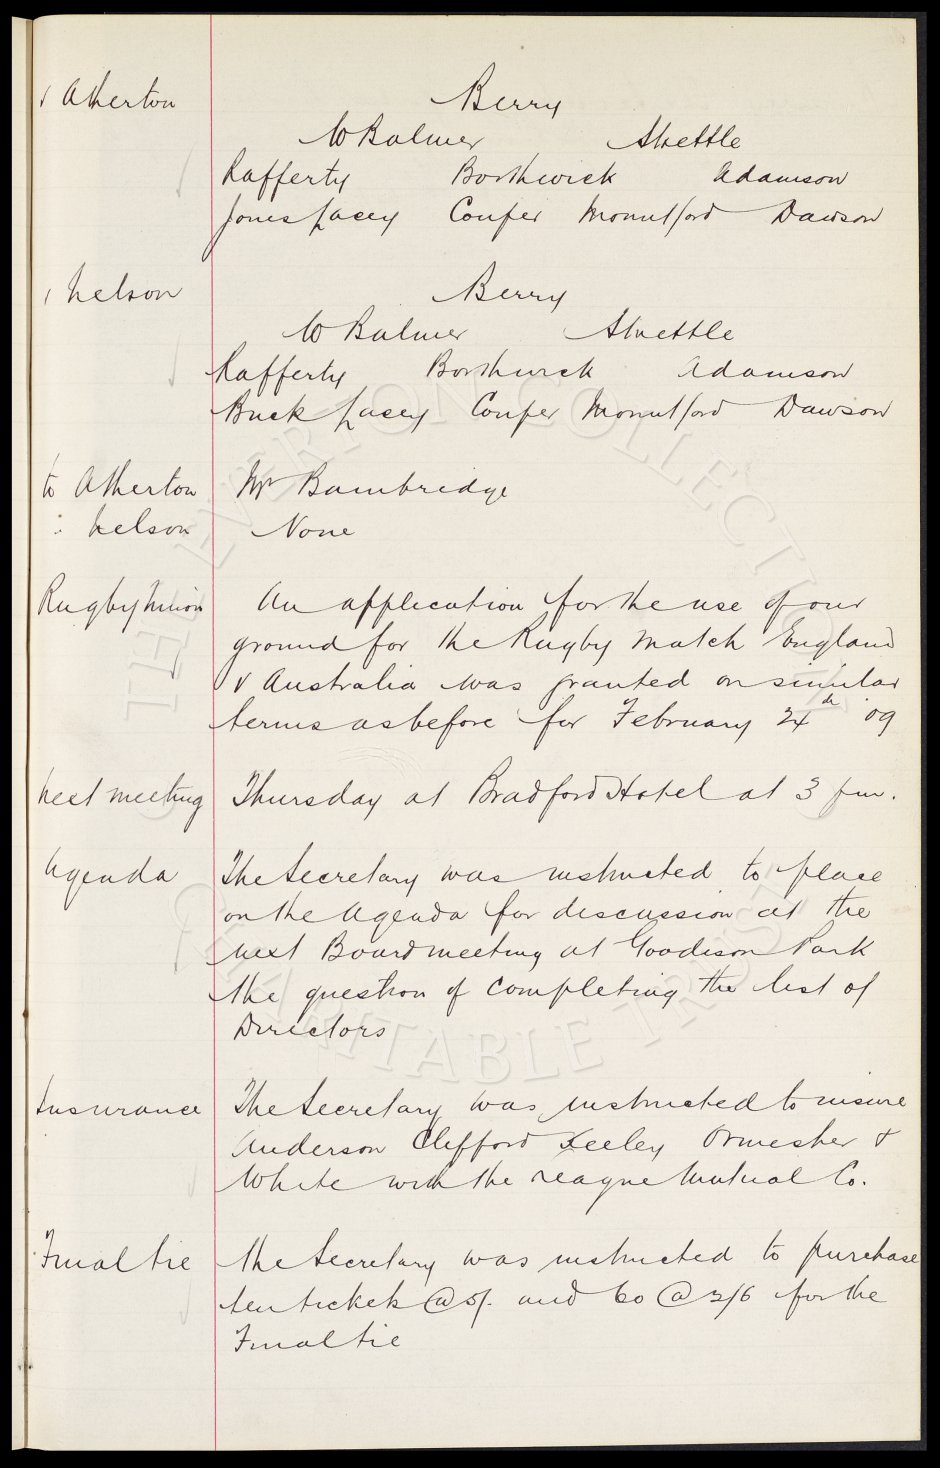 v Atherton
Berry
W Balmer Strettle
Rafferty Borthwick Adamson
Jones Lacey Couper Mountford Dawson
v Nelson
Berry
W Balmer Strettle
Rafferty Borthwick Adamson
Buck Lacey Couper Mountford Dawson
to Atherton Mr Bainbridge
: Nelson None
Rugby Union An application for the use of our
ground for the Rugby match England
v Australia was granted on similar
terms as before for February 24th '09
Next meeting Thursday at Bradford Hotel at 3 pm.
Agenda The Secretary was instructed to place
on the Agenda for discussion at the
next Board meeting at Goodison Park
the question of completing the list of
Directors
Insurance The Secretary was instructed to insure
Anderson Clifford Keeley Ormesher &
White with the League Mutual Co.
Final tie the Secretary was instructed to purchase
ten tickets @ 5/- and 60 @ 2/6 for the
Final tie
THE EVERTON COLLECTION
CHARITABLE TRUST